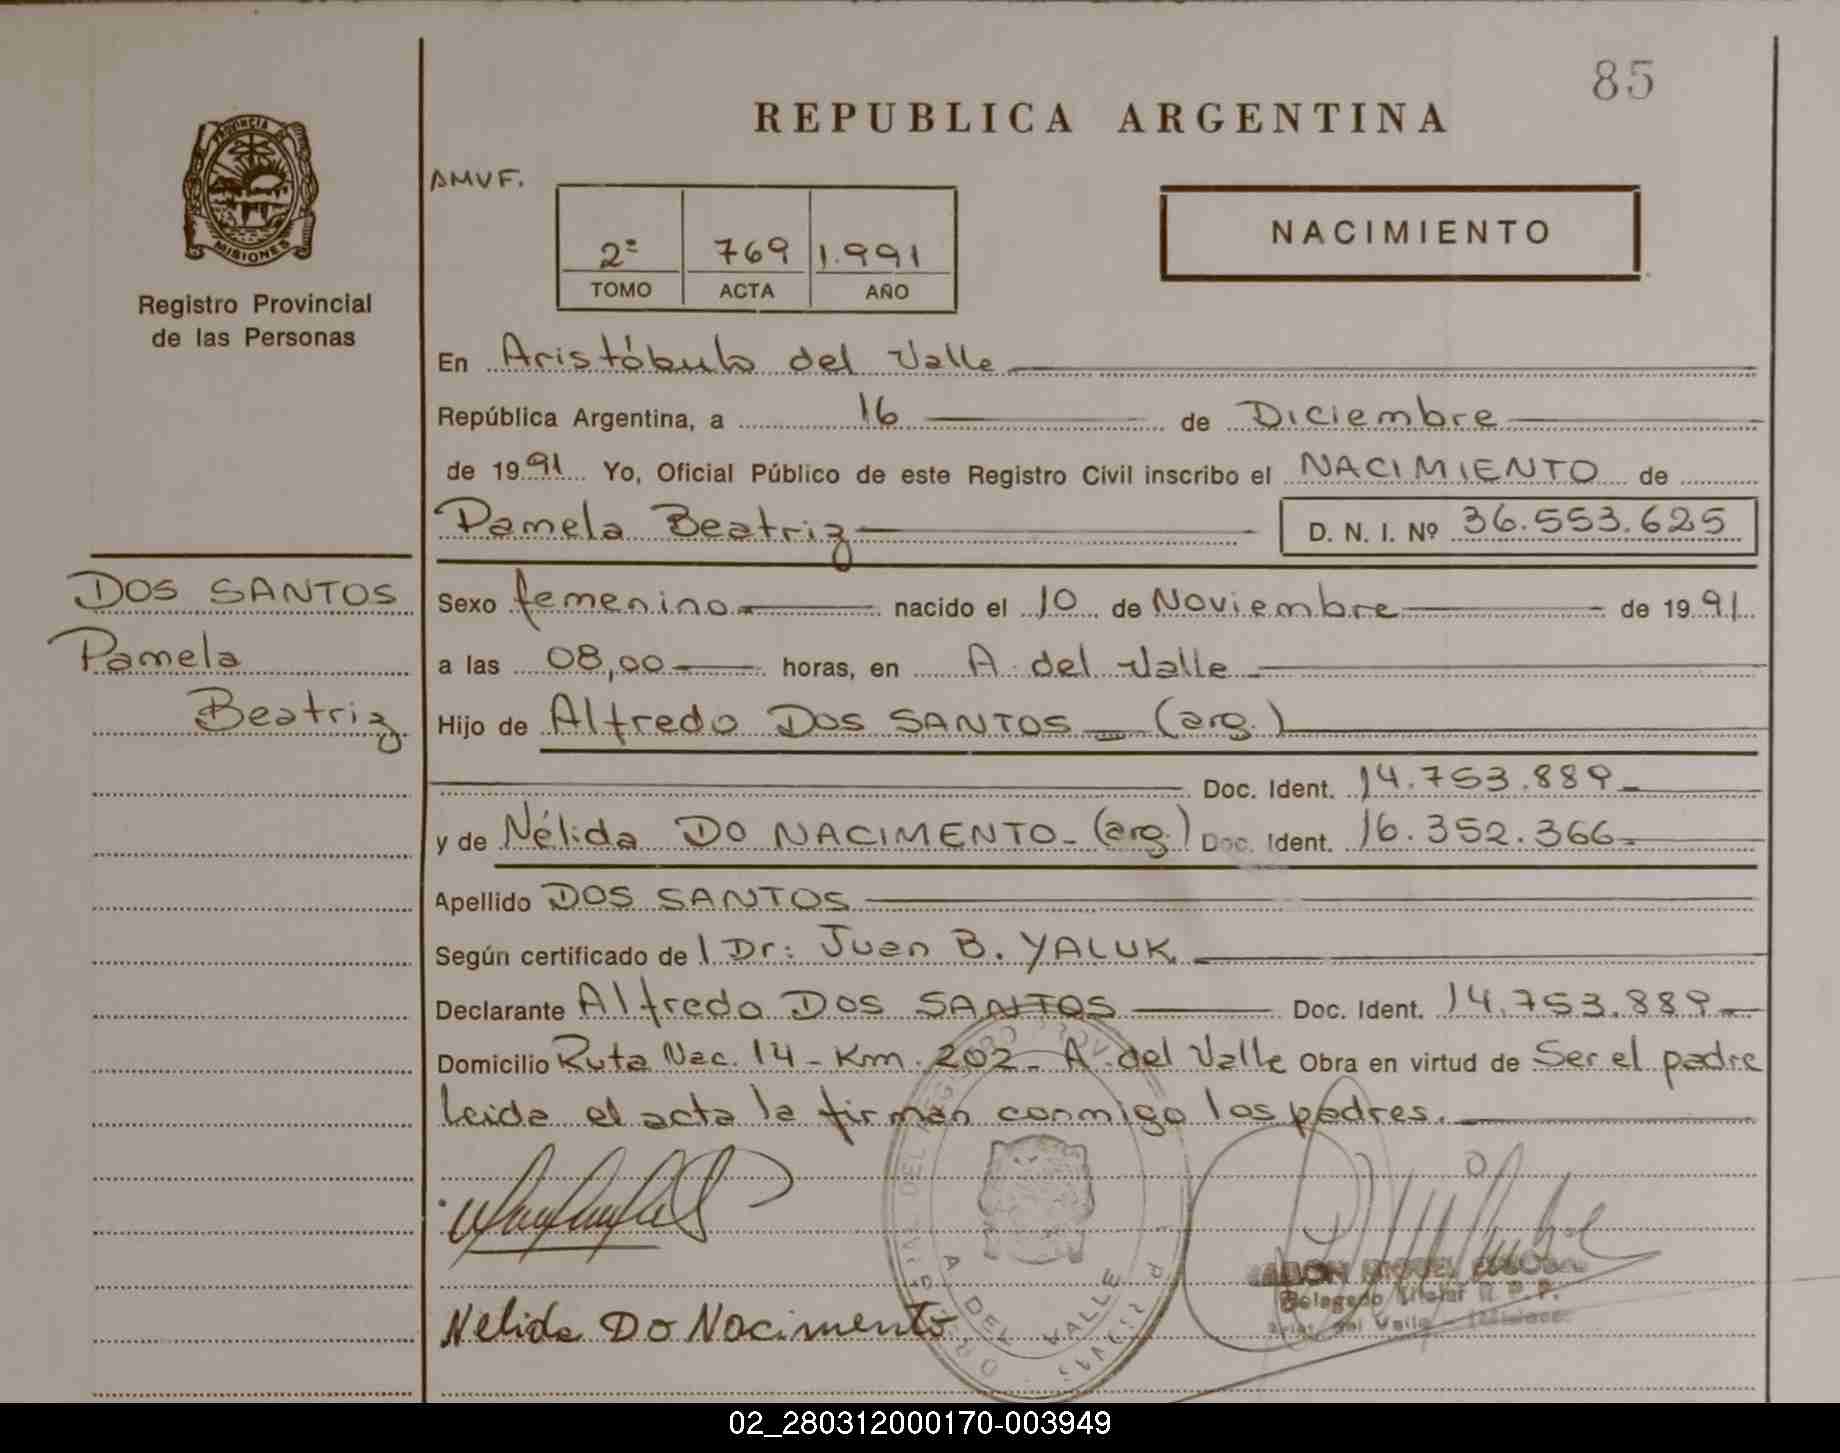 85
REPUBLICA ARGENTINA
PROVINCIA DE
MISIONES
Registro Provincial
de las Personas
AMVF.
2º 769 1.991
TOMO ACTA AÑO
NACIMIENTO
En Aristóbulo del Valle
República Argentina, a 16 de Diciembre
de 1991 Yo, Oficial Público de este Registro Civil inscribo el NACIMIENTO de
Pamela Beatriz D. N. I. Nº 36.553.625
DOS SANTOS
Pamela
Beatriz
Sexo femenino nacido el 10 de Noviembre de 1991
a las 08,00 horas, en A. del Valle
Hijo de Alfredo DOS SANTOS (arg.)
Doc. Ident. 14.753.889
y de Nélida DO NACIMENTO (arg.) Doc. Ident. 16.352.366
Apellido DOS SANTOS
Según certificado de l Dr: Juan B. YALUK.
Declarante Alfredo DOS SANTOS Doc. Ident. 14.753.889
Domicilio Ruta Nac. 14 - Km. 202 - A. del Valle Obra en virtud de Ser el padre
leida el acta la firman conmigo los padres.
A DEL VALLE
Nelida Do Nacimento
Delegado Titular R. P. P.
02_280312000170-003949